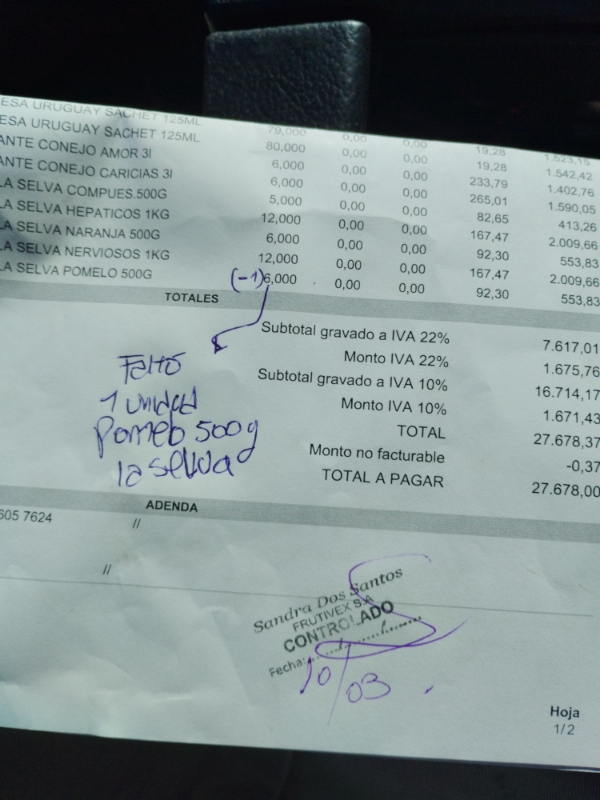 ESA URUGUAY SACHET 125ML 79,000 0,00 0,00 19,28 1.523,15
ESA URUGUAY SACHET 125ML 80,000 0,00 0,00 19,28 1.542,42
ANTE CONEJO AMOR 3l 6,000 0,00 0,00 233,79 1.402,76
ANTE CONEJO CARICIAS 3l 6,000 0,00 0,00 265,01 1.590,05
LA SELVA COMPUES.500G 5,000 0,00 0,00 82,65 413,26
LA SELVA HEPATICOS 1KG 12,000 0,00 0,00 167,47 2.009,66
LA SELVA NARANJA 500G 6,000 0,00 0,00 92,30 553,83
LA SELVA NERVIOSOS 1KG 12,000 0,00 0,00 167,47 2.009,66
LA SELVA POMELO 500G (-1) 6,000 0,00 0,00 92,30 553,83
TOTALES
Subtotal gravado a IVA 22% 7.617,01
Monto IVA 22% 1.675,76
Subtotal gravado a IVA 10% 16.714,17
Monto IVA 10% 1.671,43
TOTAL 27.678,37
Monto no facturable -0,37
TOTAL A PAGAR 27.678,00
Faltó
1 unidad
Pomelo 500g
la selva
ADENDA
605 7624 //
//
Sandra Dos Santos
FRUTIVEX S.A
CONTROLADO
Fecha:....../....../......
10/03.
Hoja
1/2